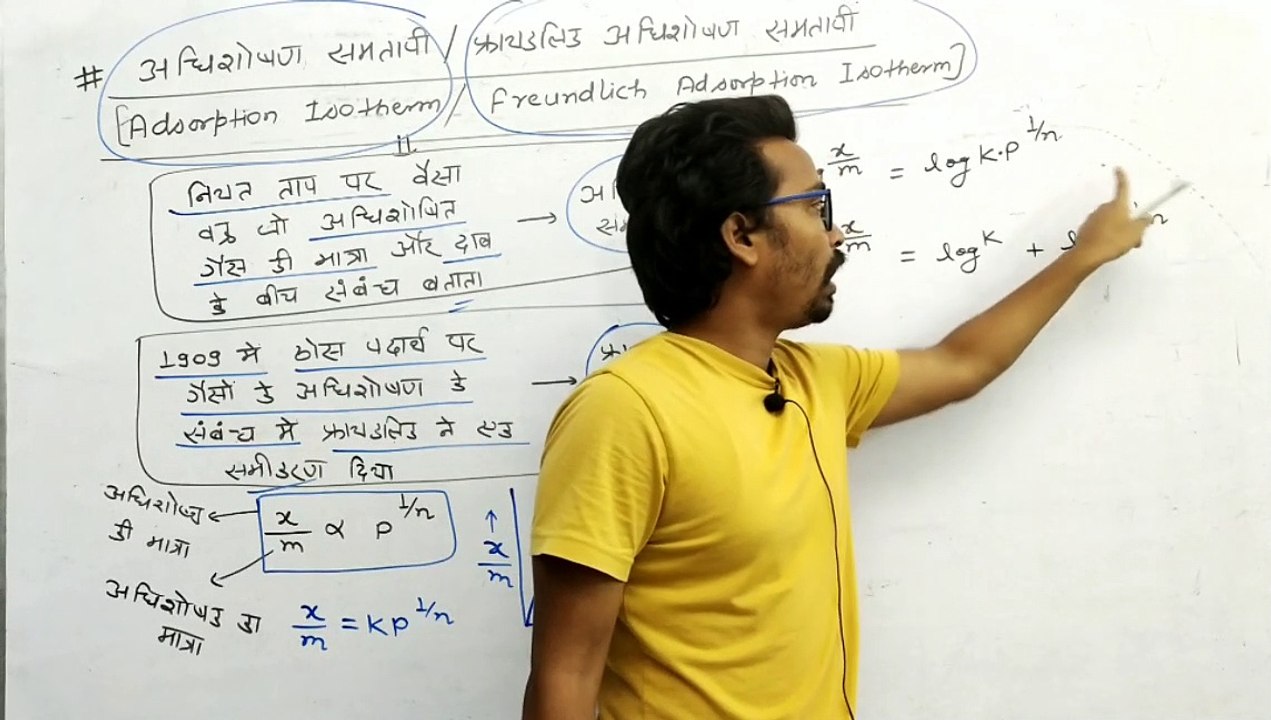 # अधिशोषण समतापी / फ्रायंडलिक अधिशोषण समतापी
[Adsorption Isotherm / Freundlich Adsorption Isotherm]
नियत ताप पर वैसा
वक्र जो अधिशोषित
गैस की मात्रा और दाब
के बीच संबंध बताता
→
1909 मे ठोस पदार्थ पर
गैसों के अधिशोषण के
संबंध मे फ्रायंडलिक ने एक
समीकरण दिया
→
अधिशोष्य
की मात्रा
x/m ∝ P^1/n
अधिशोषक का
मात्रा
x/m = KP^1/n
↑ x/m
x/m = log K.P^1/n
x/m = log K +